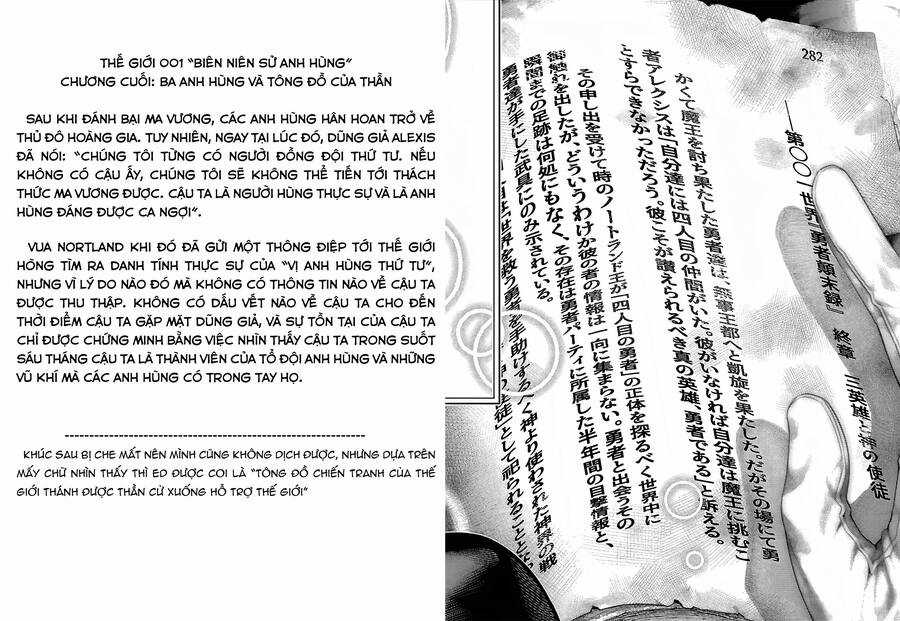 THẾ GIỚI 001 "BIÊN NIÊN SỬ ANH HÙNG"
CHƯƠNG CUỐI: BA ANH HÙNG VÀ TÔNG ĐỒ CỦA THẦN
SAU KHI ĐÁNH BẠI MA VƯƠNG, CÁC ANH HÙNG HÂN HOAN TRỞ VỀ
THỦ ĐÔ HOÀNG GIA. TUY NHIÊN, NGAY TẠI LÚC ĐÓ, DŨNG GIẢ ALEXIS
ĐÃ NÓI: "CHÚNG TÔI TỪNG CÓ NGƯỜI ĐỒNG ĐỘI THỨ TƯ. NẾU
KHÔNG CÓ CẬU ẤY, CHÚNG TÔI SẼ KHÔNG THỂ TIẾN TỚI THÁCH
THỨC MA VƯƠNG ĐƯỢC. CẬU TA LÀ NGƯỜI HÙNG THỰC SỰ VÀ LÀ ANH
HÙNG ĐÁNG ĐƯỢC CA NGỢI".
VUA NORTLAND KHI ĐÓ ĐÃ GỬI MỘT THÔNG ĐIỆP TỚI THẾ GIỚI
HÒNG TÌM RA DANH TÍNH THỰC SỰ CỦA "VỊ ANH HÙNG THỨ TƯ",
NHƯNG VÌ LÝ DO NÀO ĐÓ MÀ KHÔNG CÓ THÔNG TIN NÀO VỀ CẬU TA
ĐƯỢC THU THẬP. KHÔNG CÓ DẤU VẾT NÀO VỀ CẬU TA CHO ĐẾN
THỜI ĐIỂM CẬU TA GẶP MẶT DŨNG GIẢ, VÀ SỰ TỒN TẠI CỦA CẬU TA
CHỈ ĐƯỢC CHỨNG MINH BẰNG VIỆC NHÌN THẤY CẬU TA TRONG SUỐT
SÁU THÁNG CẬU TA LÀ THÀNH VIÊN CỦA TỔ ĐỘI ANH HÙNG VÀ NHỮNG
VŨ KHÍ MÀ CÁC ANH HÙNG CÓ TRONG TAY HỌ.
KHÚC SAU BỊ CHE MẤT NÊN MÌNH CŨNG KHÔNG DỊCH ĐƯỢC, NHƯNG DỰA TRÊN
MẤY CHỮ NHÌN THẤY THÌ ED ĐƯỢC COI LÀ "TÔNG ĐỒ CHIẾN TRANH CỦA THẾ
GIỚI THÁNH ĐƯỢC THẦN CỬ XUỐNG HỖ TRỢ THẾ GIỚI"
282
―第〇〇一世界『勇者顛末録』 終章 三英雄と神の使徒
かくて魔王を討ち果たした勇者達は、無事王都へと凱旋を果たした。だがその場にて勇
者アレクシスは「自分達には四人目の仲間がいた。彼がいなければ自分達は魔王に挑むこ
とすらできなかっただろう。彼こそが讃えられるべき真の英雄、勇者である」と訴える。
その申し出を受けて時のノートランド王が「四人目の勇者」の正体を探るべく世界中に
御触れを出したが、どういうわけか彼の者の情報は一向に集まらない。勇者と出会うその
瞬間までの足跡は何処にもなく、その存在は勇者パーティに所属した半年間の目撃情報と、
勇者達が手にした武具にのみ示されている。
は「世界を救う勇者を手助けするべく神より使わされた神界の戦
徒」として祀られることと